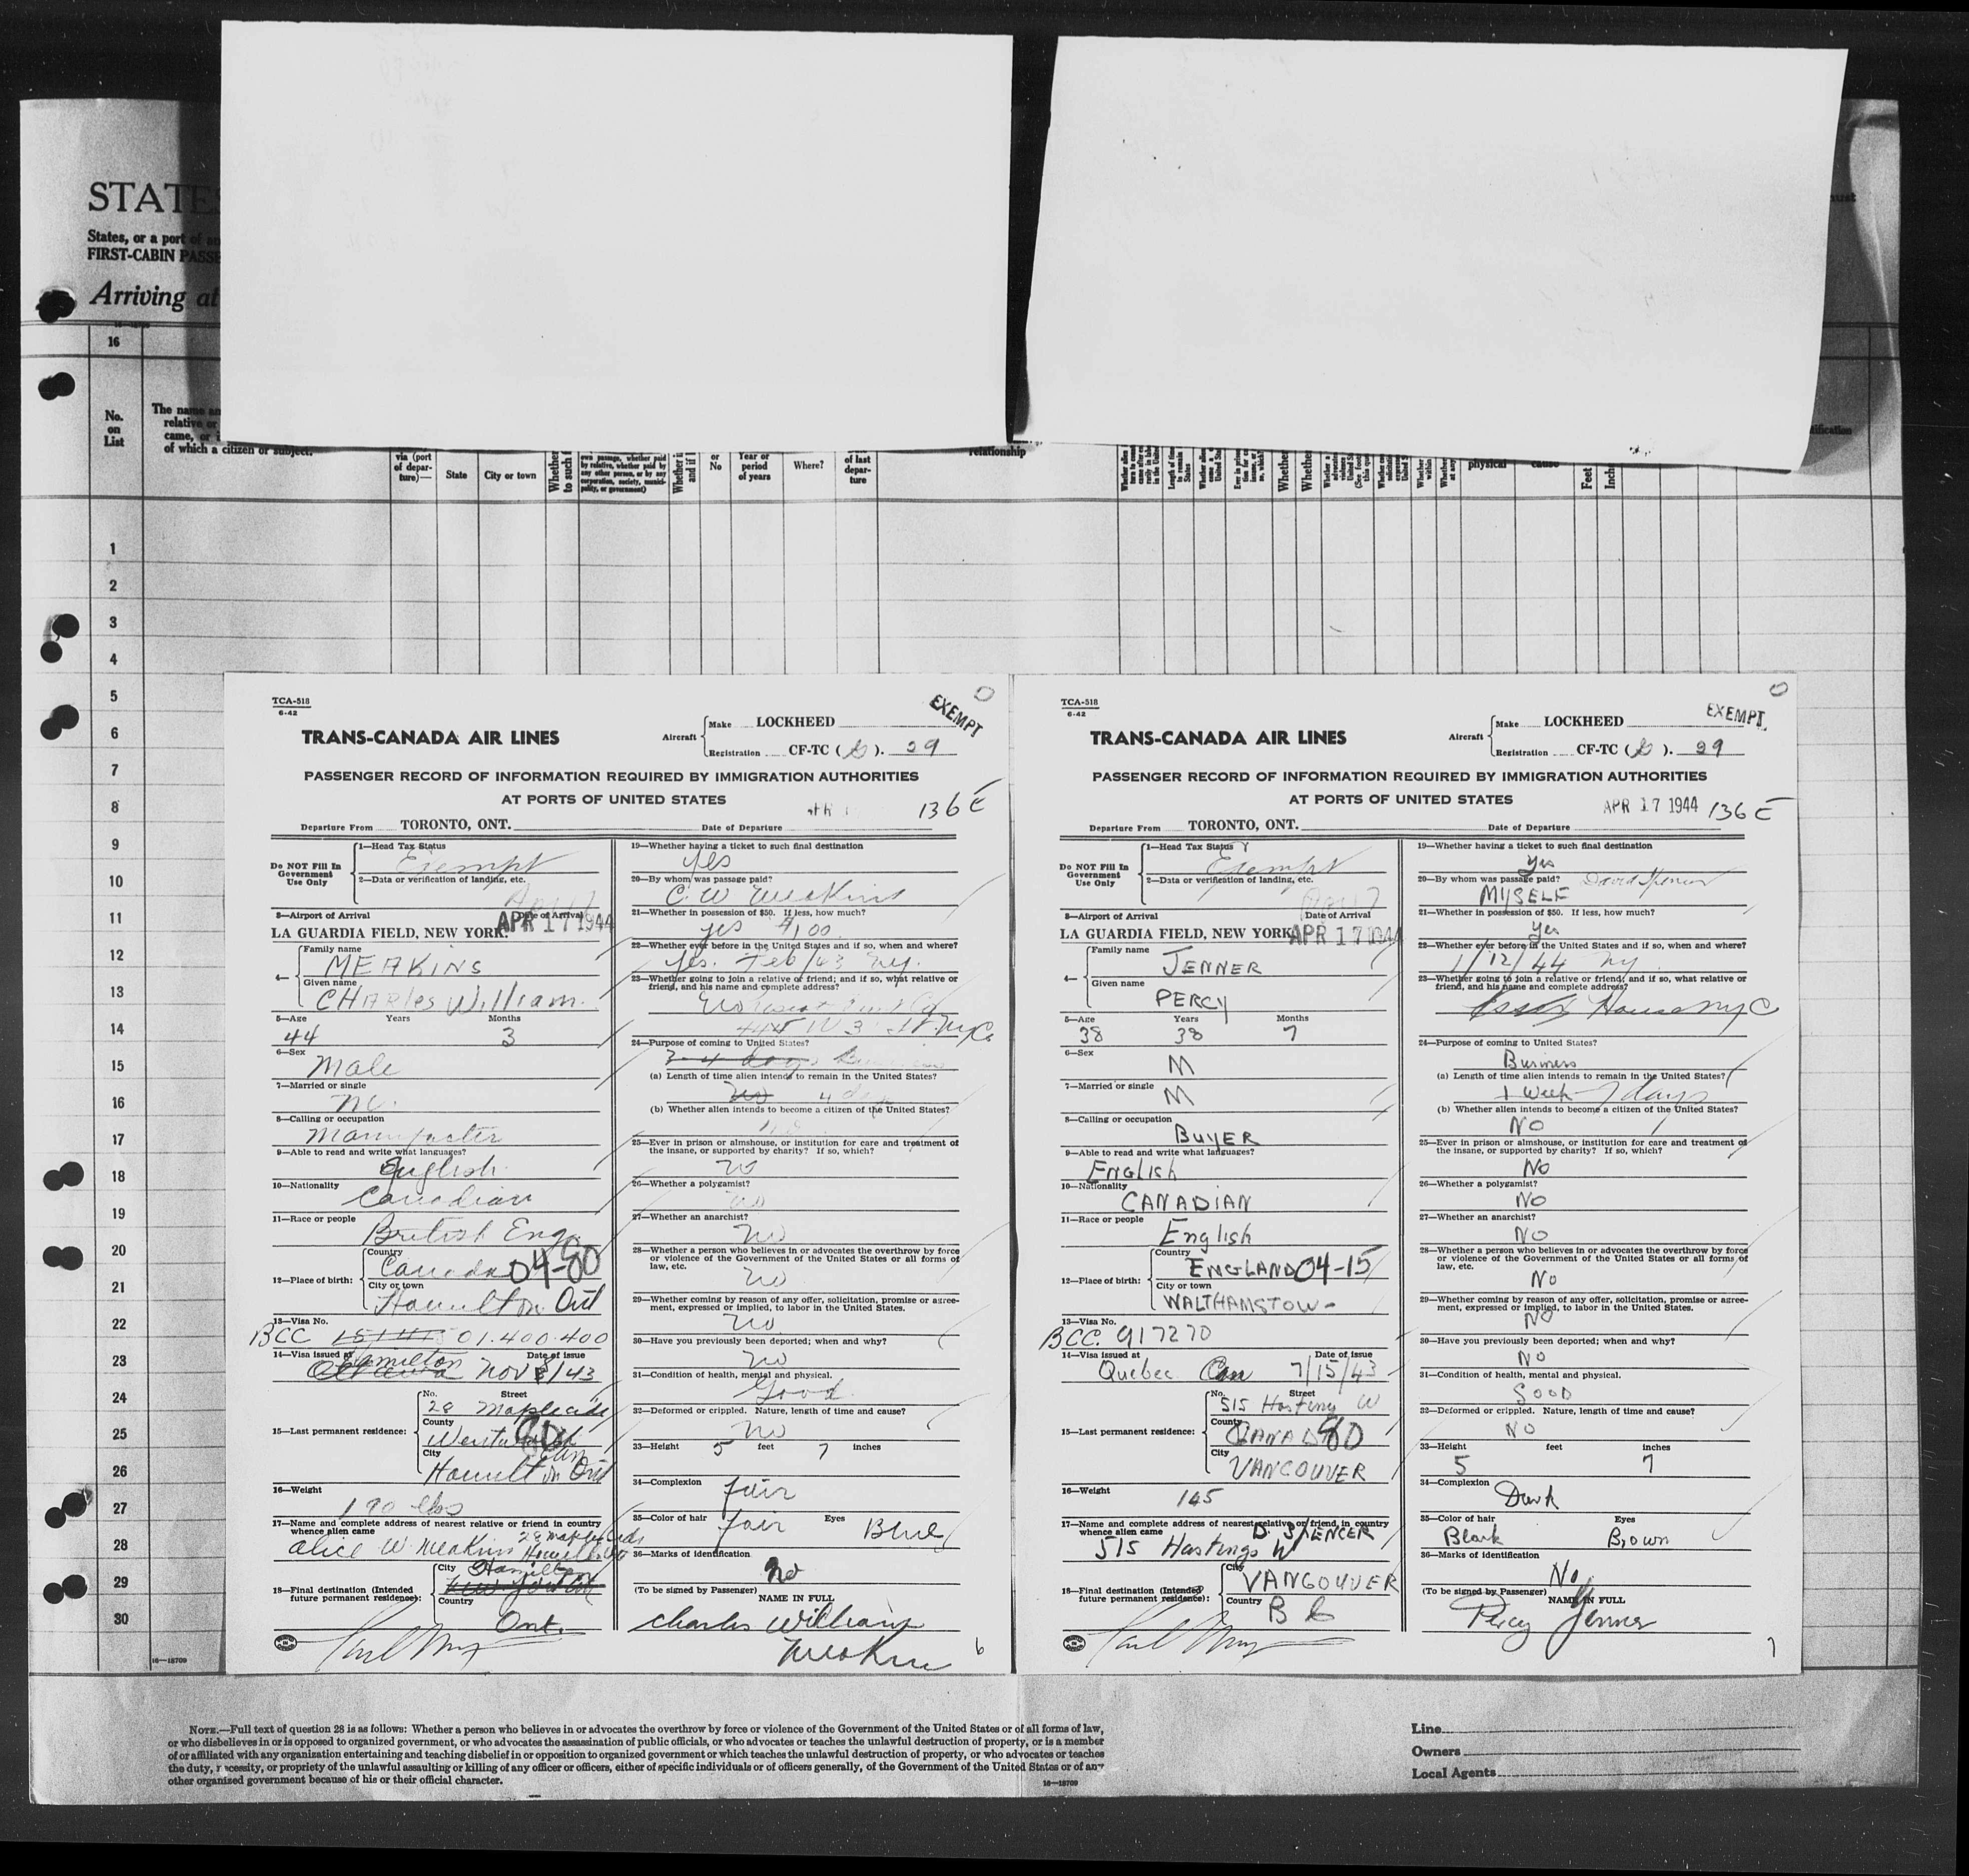 STATES
States, or a port of an
FIRST-CABIN PASSE
Arriving at
16
No.
on
List
The name an
relative or
came, or i
of which a citizen or subject.
via (port
of depar-
ture)—
State
City or town
Whether
to such f
own passage, whether paid
by relative, whether paid by
any other person, or by any
corporation, society, munici-
pality, or government)
Whether i
and if i
or
No
Year or
period
of years
Where?
of last
depar-
ture
relationship
physical
cause
Feet
Inch
1
2
3
4
5
6
7
8
9
10
11
12
13
14
15
16
17
18
19
20
21
22
23
24
25
26
27
28
29
30
16—18709
TCA-518
6-42
EXEMPT
TRANS-CANADA AIR LINES
Aircraft
Make LOCKHEED
Registration CF-TC ( ). 29
PASSENGER RECORD OF INFORMATION REQUIRED BY IMMIGRATION AUTHORITIES
AT PORTS OF UNITED STATES
136 E
Departure From TORONTO, ONT. Date of Departure
Do NOT Fill In
Government
Use Only
1—Head Tax Status
Exempt
2—Data or verification of landing, etc.
3—Airport of Arrival Date of Arrival
LA GUARDIA FIELD, NEW YORK. APR 17 1944
4— Family name
MEAKINS
Given name
CHARles William.
5—Age Years Months
44 3
6—Sex
Male
7—Married or single
M.
8—Calling or occupation
9—Able to read and write what languages?
English
10—Nationality
Canadian
11—Race or people
British Eng.
12—Place of birth:
Country
Canada 04-80
City or town
Hamilton Ont
13—Visa No.
BCC 01.400.400
14—Visa issued at Date of issue
Hamilton
Ottawa Nov 8/43
15—Last permanent residence:
No. Street
28 Mapleside
County
Wentworth 80
City
Hamilton Ont
16—Weight
190 lbs
17—Name and complete address of nearest relative or friend in country
whence alien came
Alice W Meakins 28 Mapleside
18—Final destination (Intended
future permanent residence):
City Hamilton
New York
Country
Ont.
19—Whether having a ticket to such final destination
Yes
20—By whom was passage paid?
C. W Meakins
21—Whether in possession of $50. If less, how much?
yes $100
22—Whether ever before in the United States and if so, when and where?
Yes. Feb/43 NY.
23—Whether going to join a relative or friend; and if so, what relative or
friend, and his name and complete address?
24—Purpose of coming to United States?
3-4 days Business
(a) Length of time alien intends to remain in the United States?
No 4 days
(b) Whether alien intends to become a citizen of the United States?
No
25—Ever in prison or almshouse, or institution for care and treatment of
the insane, or supported by charity? If so, which?
No
26—Whether a polygamist?
No
27—Whether an anarchist?
No
28—Whether a person who believes in or advocates the overthrow by force
or violence of the Government of the United States or all forms of
law, etc.
No
29—Whether coming by reason of any offer, solicitation, promise or agree-
ment, expressed or implied, to labor in the United States.
No
30—Have you previously been deported; when and why?
No
31—Condition of health, mental and physical.
Good.
32—Deformed or crippled. Nature, length of time and cause?
No
33—Height 5 feet 7 inches
34—Complexion
fair
35—Color of hair fair Eyes Blue
36—Marks of identification
No
(To be signed by Passenger) NAME IN FULL
Charles William
Meakins
6
TCA-518
6-42
EXEMPT
TRANS-CANADA AIR LINES
Aircraft
Make LOCKHEED
Registration CF-TC ( ). 29
PASSENGER RECORD OF INFORMATION REQUIRED BY IMMIGRATION AUTHORITIES
AT PORTS OF UNITED STATES
APR 17 1944 136 E
Departure From TORONTO, ONT. Date of Departure
Do NOT Fill In
Government
Use Only
1—Head Tax Status
Exempt
2—Data or verification of landing, etc.
3—Airport of Arrival Date of Arrival
LA GUARDIA FIELD, NEW YORK. APR 17 1944
4— Family name
JENNER
Given name
PERCY
5—Age Years Months
38 38 7
6—Sex
M
7—Married or single
M
8—Calling or occupation
BUYER
9—Able to read and write what languages?
ENGLISH
10—Nationality
CANADIAN
11—Race or people
English
12—Place of birth:
Country
ENGLAND 04-15
City or town
WALTHAMSTOW-
13—Visa No.
BCC. 917270
14—Visa issued at Date of issue
Quebec Can 7/15/43
15—Last permanent residence:
No. Street
515 Hastings W
County
CANADA 80
City
VANCOUVER
16—Weight
165
17—Name and complete address of nearest relative or friend in country
whence alien came D. SPENCER
515 Hastings W
18—Final destination (Intended
future permanent residence):
City
VANCOUVER
Country
B C
19—Whether having a ticket to such final destination
Yes
20—By whom was passage paid? David Spencer
MYSELF
21—Whether in possession of $50. If less, how much?
Yes
22—Whether ever before in the United States and if so, when and where?
1/12/44 NY
23—Whether going to join a relative or friend; and if so, what relative or
friend, and his name and complete address?
Essex House NYC
24—Purpose of coming to United States?
Business
(a) Length of time alien intends to remain in the United States?
1 Week 7 days
(b) Whether alien intends to become a citizen of the United States?
NO
25—Ever in prison or almshouse, or institution for care and treatment of
the insane, or supported by charity? If so, which?
No
26—Whether a polygamist?
NO
27—Whether an anarchist?
NO
28—Whether a person who believes in or advocates the overthrow by force
or violence of the Government of the United States or all forms of
law, etc.
No
29—Whether coming by reason of any offer, solicitation, promise or agree-
ment, expressed or implied, to labor in the United States.
NO
30—Have you previously been deported; when and why?
NO
31—Condition of health, mental and physical.
GOOD
32—Deformed or crippled. Nature, length of time and cause?
NO
33—Height feet inches
5 7
34—Complexion
Dark
35—Color of hair Eyes
Black Brown
36—Marks of identification
No
(To be signed by Passenger) NAME IN FULL
Percy Jenner
7
NOTE.—Full text of question 28 is as follows: Whether a person who believes in or advocates the overthrow by force or violence of the Government of the United States or of all forms of law,
or who disbelieves in or is opposed to organized government, or who advocates the assassination of public officials, or who advocates or teaches the unlawful destruction of property, or is a member
of or affiliated with any organization entertaining and teaching disbelief in or opposition to organized government or which teaches the unlawful destruction of property, or who advocates or teaches
the duty, necessity, or propriety of the unlawful assaulting or killing of any officer or officers, either of specific individuals or of officers generally, of the Government of the United States or of any
other organized government because of his or their official character.
16—18709
Line
Owners
Local Agents